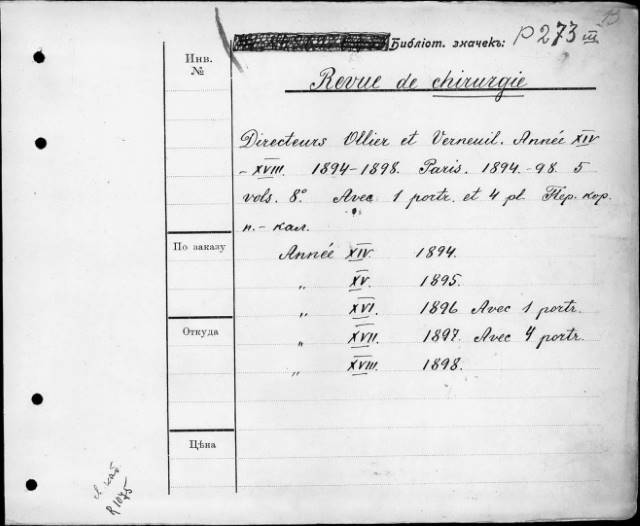 Библіот. значекъ: P 273 III
Инв.
№
Revue de chirurgie
Directeurs Ollier et Verneuil. Année XIV
- XVIII. 1894-1898. Paris. 1894-98. 5
vols. 8.° Avec 1 portr. et 4 pl. Пер. кор.
п.- кал.
По заказу
Année XIV. 1894.
„ XV. 1895.
„ XVI. 1896 Avec 1 portr.
Откуда
„ XVII. 1897 Avec 4 portr.
„ XVIII. 1898.
Цѣна
R 1075